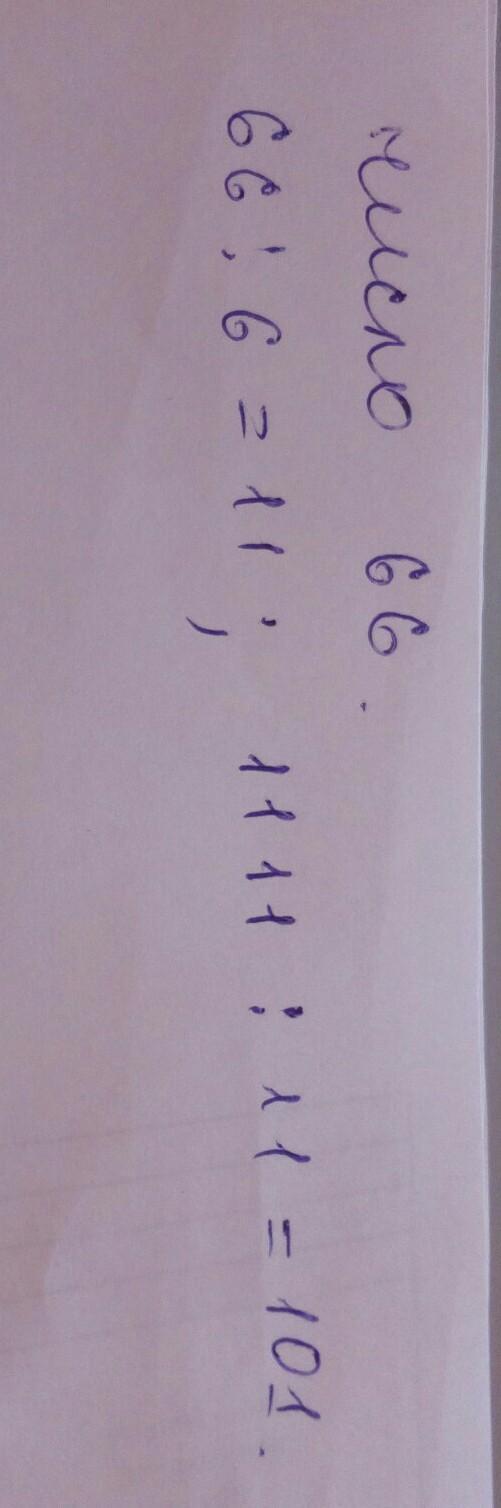 число 66.
66 : 6 = 11 ; 1111 : 11 = 101.